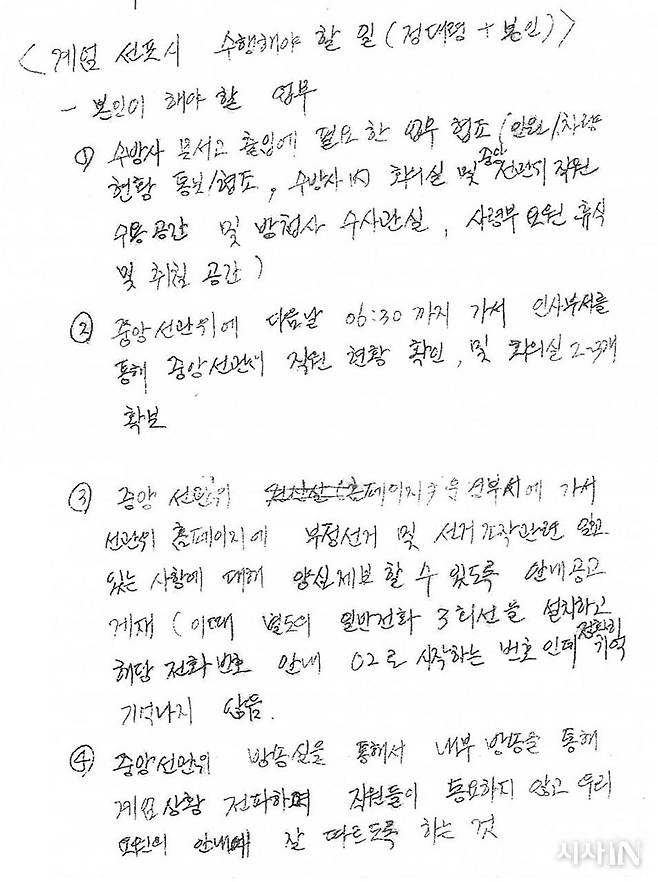 <계엄 선포시 수행해야 할 일 (정대령 + 본인)>
- 본인이 해야 할 업무
① 수방사 문서고 출입에 필요한 업무 협조 (인원/차량
현황 통보/협조, 수방사 內 회의실 및 중앙선관위 직원
수용 공간 및 방첩사 수사관실, 사령부 요원 휴식
및 취침 공간)
② 중앙선관위에 다음날 06:30까지 가서 인사부서를
통해 중앙선관위 직원 현황 확인, 및 회의실 2-3개
확보
③ 중앙선관위 (홈페이지) 운영부서에 가서
선관위 홈페이지에 부정선거 및 선거조작관련 알고
있는 사항에 대해 양심제보 할 수 있도록 안내공고
게재 (이때 별도의 일반전화 3회선을 설치하고
해당 전화번호 안내 02로 시작하는 번호인데 정확히 기억
기억나지 않음.
④ 중앙선관위 방송실을 통해서 내부 방송을 통해
계엄상황 전파하며 직원들이 동요하지 않고 우리
요원의 안내에 잘 따르도록 하는 것
시사IN